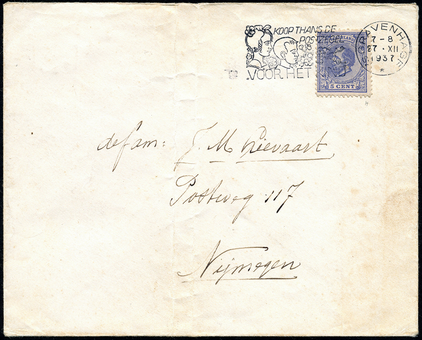 KOOP THANS DE
POSTZEGELS
VOOR HET
'S GRAVENHAGE
7-8
27·XII
1937
5 CENT
de fam: J. M. Lievaart
Postweg 117
Nijmegen